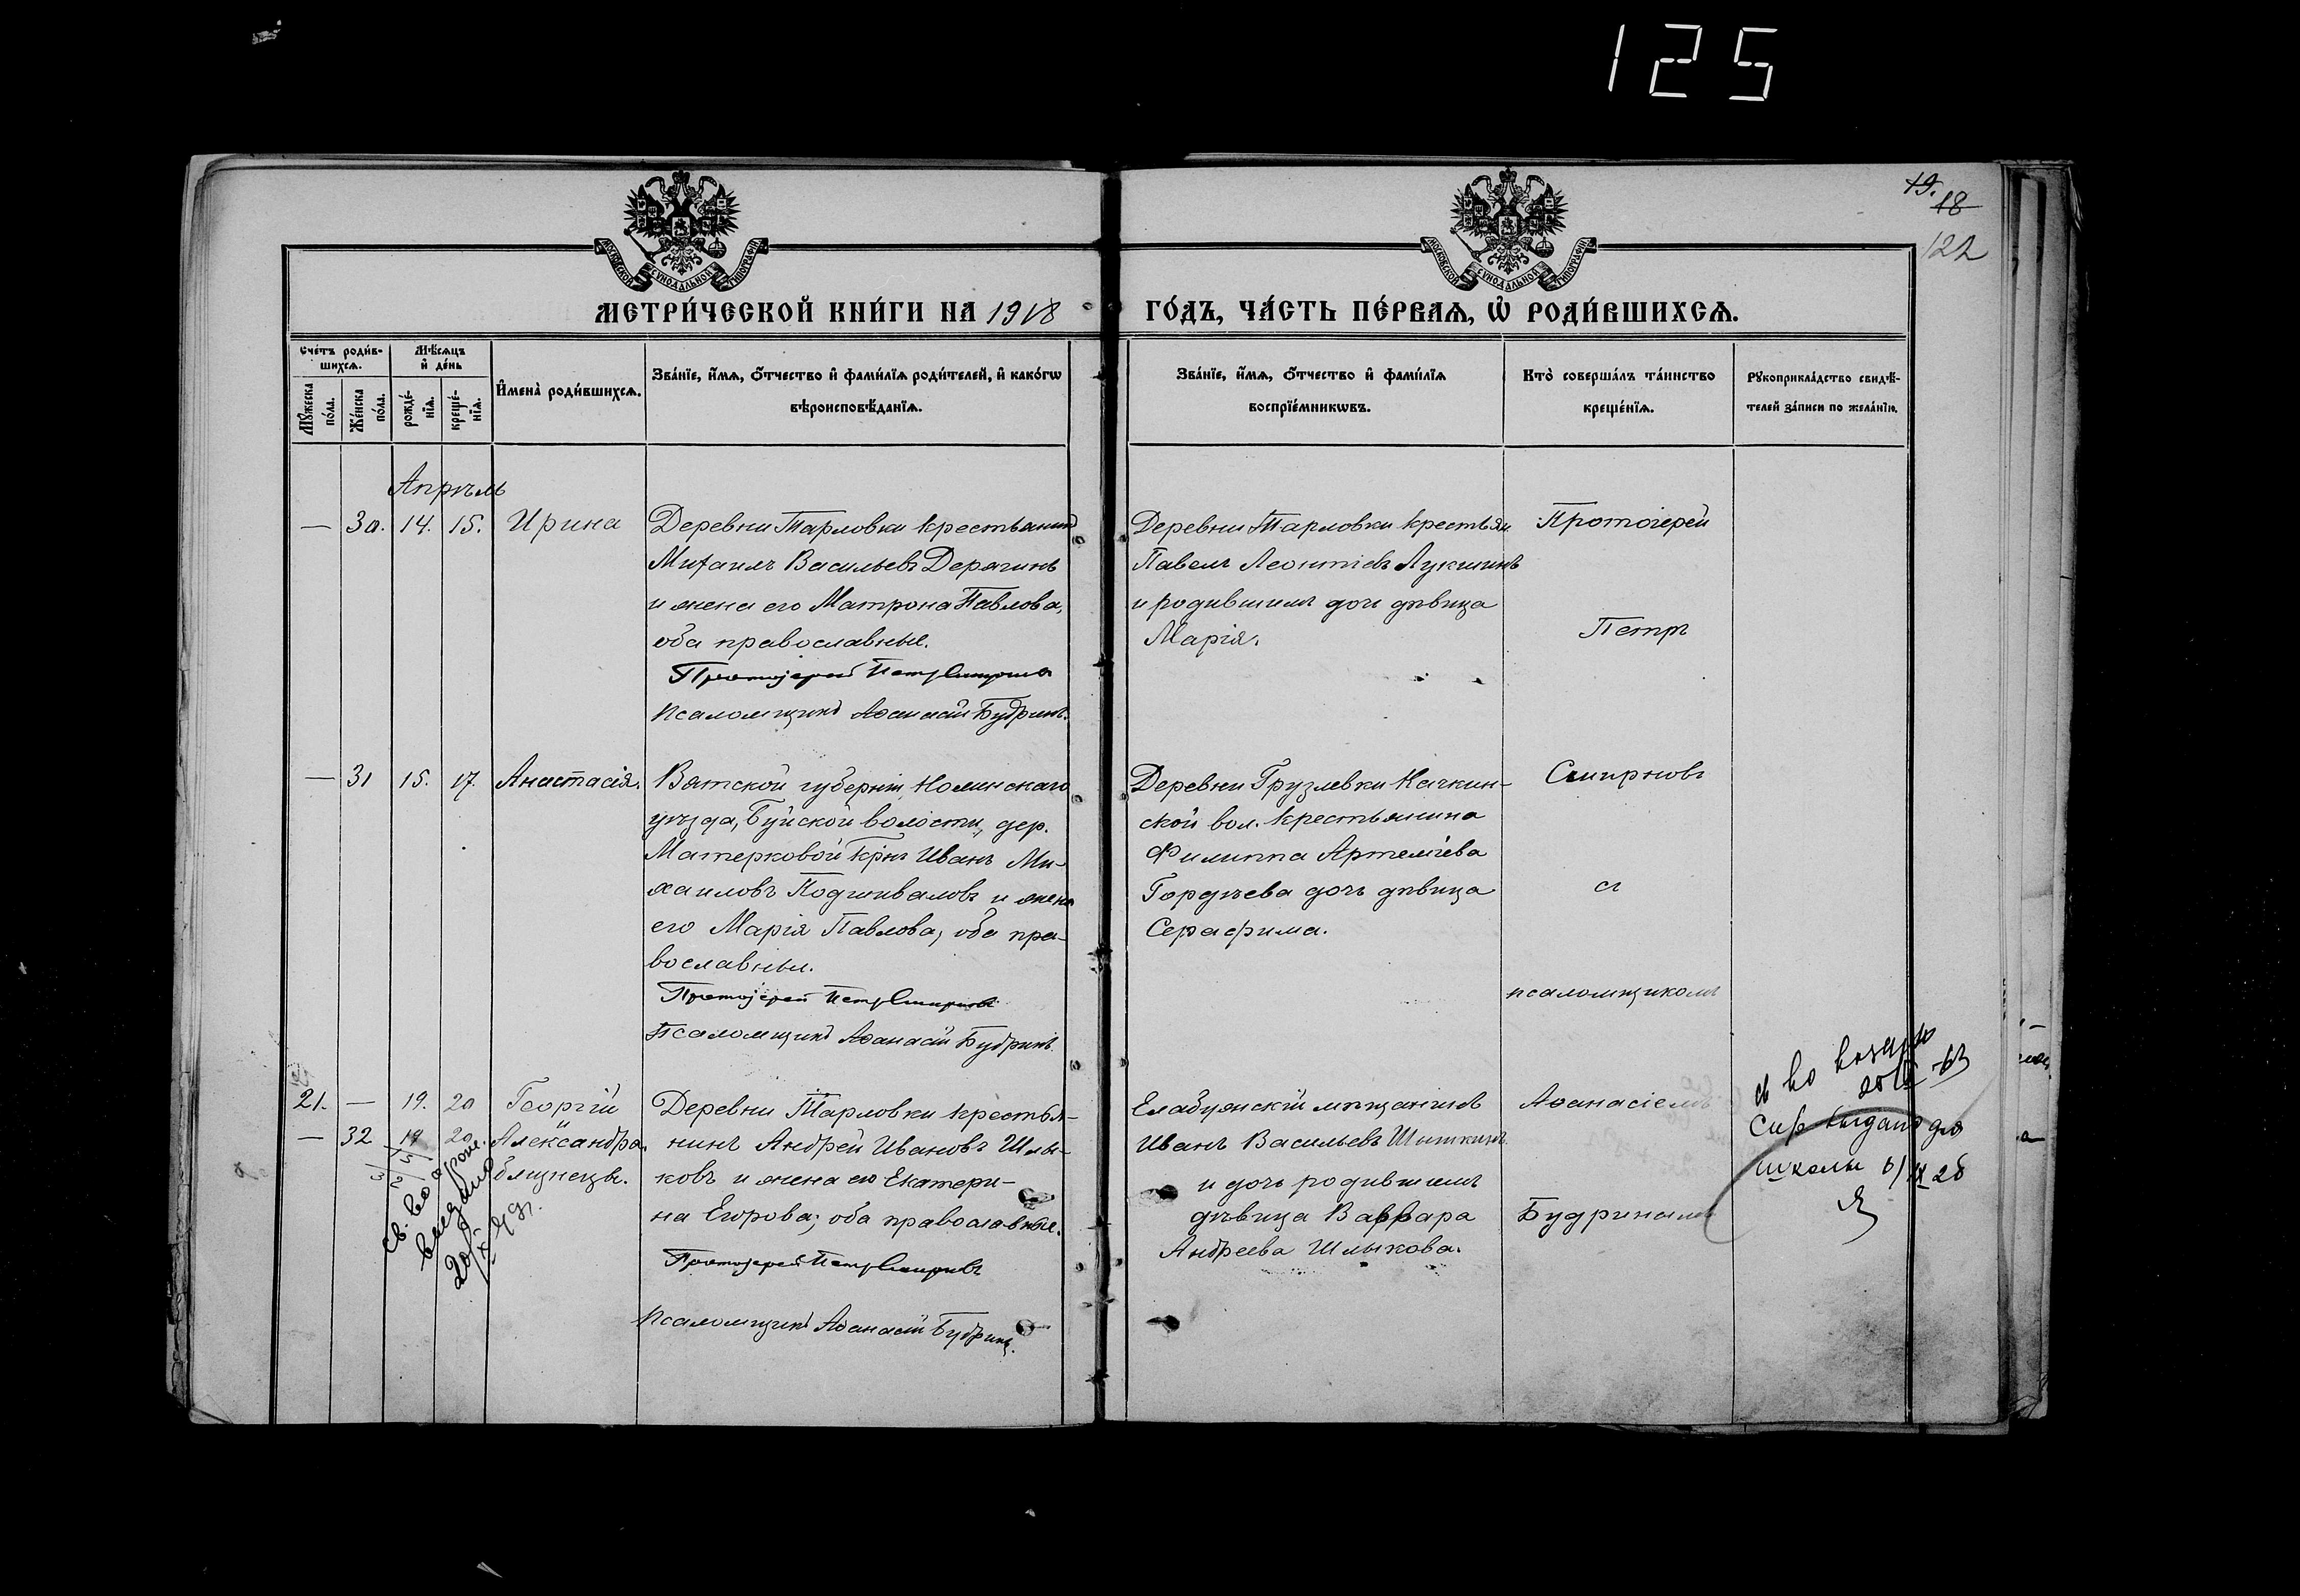 125
19.
18
122
МОСКОВСКОЙ СУНОДАЛЬНОЙ ТИПОГРАФІИ
МОСКОВСКОЙ СУНОДАЛЬНОЙ ТИПОГРАФІИ
МЕТРИ́ЧЕСКОЙ КНИ́ГИ НА 1918 ГО́ДЪ, ЧА́СТЬ ПЕ́РВАѦ, Ѡ҆ РОДИ́ВШИХСѦ.
Сче́тъ роди́в-
шихсѧ.
Мѣ́сѧцъ
и҆ де́нь
Мꙋ́жеска
по́ла.
Же́нска
по́ла.
рожде́-
нїѧ.
креще́-
нїѧ.
И҆мена̀ роди́вшихсѧ.
Зва́нїе, и҆́мѧ, ѻ҆́тчество и҆ фами́лїѧ роди́телей, и҆ како́гѡ
вѣроисповѣ́данїѧ.
Зва́нїе, и҆́мѧ, ѻ҆́тчество и҆ фами́лїѧ
воспрїе́мникѡвъ.
Кто̀ соверша́лъ та́инство
креще́нїѧ.
Рꙋкоприкла́дство свидѣ́-
телей за́писи по жела́нїю.
Апрѣль
— 30. 14. 15. Ирина
Деревни Тарловки крестьянинъ
Михаилъ Васильевъ Дерягинъ
и жена его Матрона Павлова,
оба православные.
Протоіерей Петръ Смирновъ
Псаломщикъ Аѳанасій Будринъ.
Деревни Тарловки крестьян.
Павелъ Леонтіевъ Лукшинъ
и родившихъ дочь дѣвица
Марія.
Протоіерей
Петръ
— 31 15. 17. Анастасія.
Вятской губерніи, Нолинскаго
уѣзда, Буйской волости, дер.
Матерковой крнъ Иванъ Ми-
хаиловъ Подшиваловъ и жена
его Марія Павлова, оба пра-
вославныи.
Протоіерей Петръ Смирновъ
Псаломщикъ Аѳанасій Будринъ.
Деревни Грузлевки Качкин-
ской вол. крестьянина
Филиппа Артеміева
Гордѣева дочь дѣвица
Серафима.
Смирновъ
съ
псаломщикомъ
21. — 19. 20 Георгій
— 32 19 20. Александра.
близнецы.
Деревни Тарловки крестья-
нинъ Андрей Ивановъ Шлы-
ковъ и жена его Екатери-
на Егорова; оба православные.
Протоіерей Петръ Смирновъ
Псаломщикъ Аѳанасій Будринъ.
Елабужскій мѣщанинъ
Иванъ Васильевъ Шишкинъ
и дочь родившихъ
дѣвица Варвара
Андреева Шлыкова.
Аѳанасіемъ
Будринымъ
св. во
выдано
школы